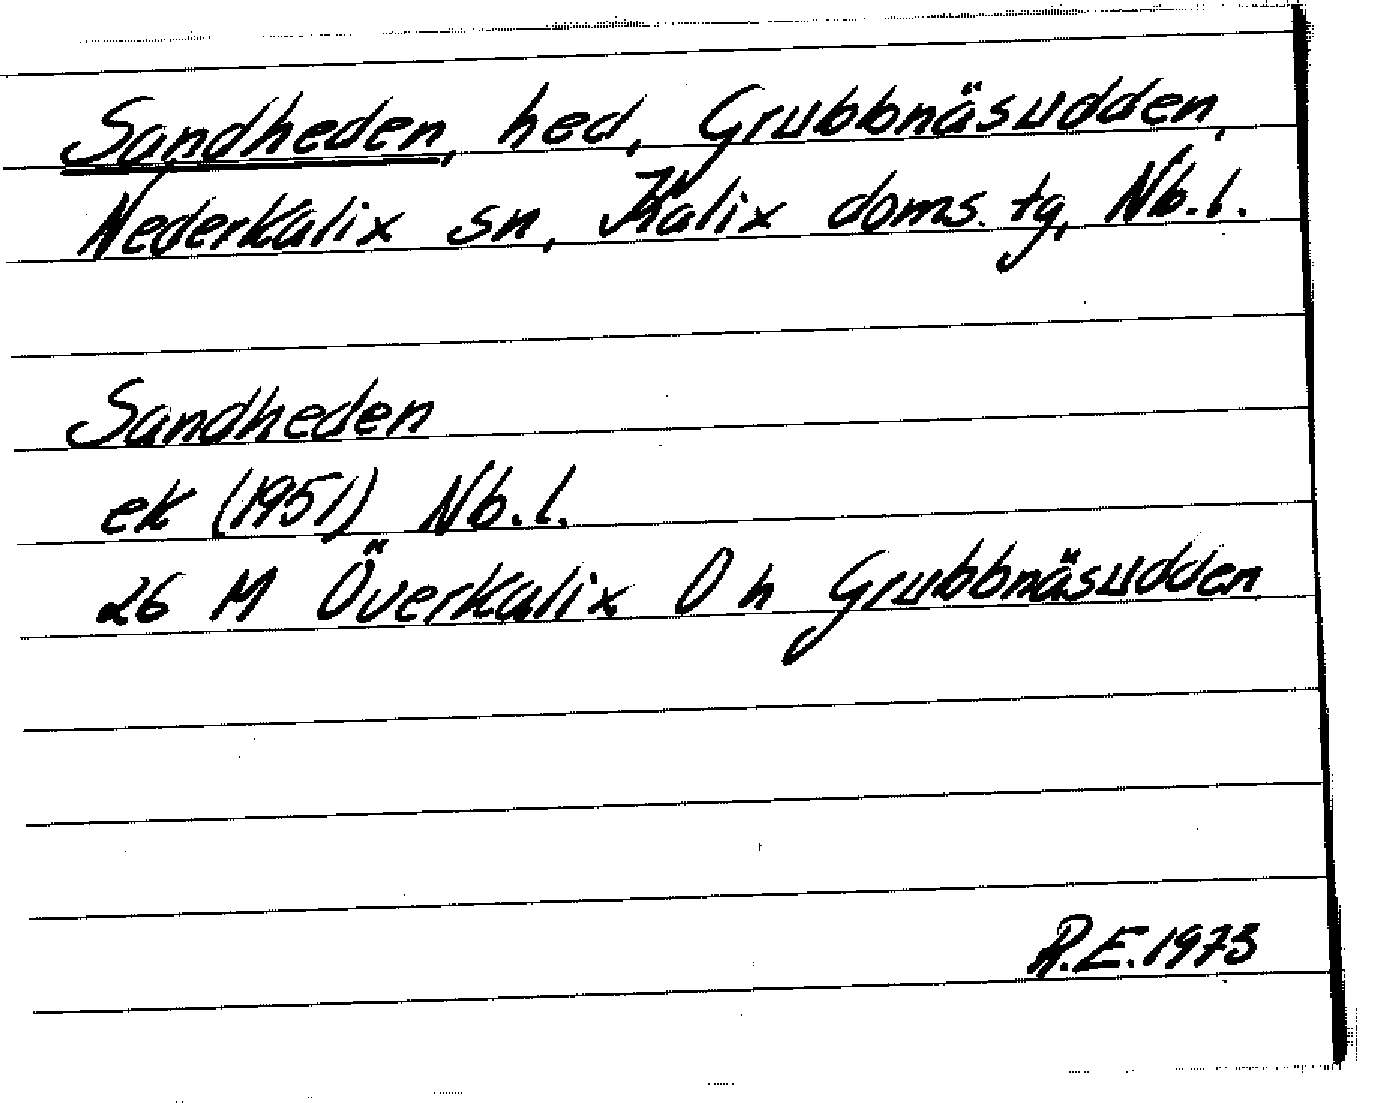 Sandheden, hed, Grubbnäsudden,
Nederkalix sn, Kalix doms. tg, Nb.l.
Sandheden
ek (1951) Nb.l.
26 M Överkalix O h Grubbnäsudden
R.E. 1973